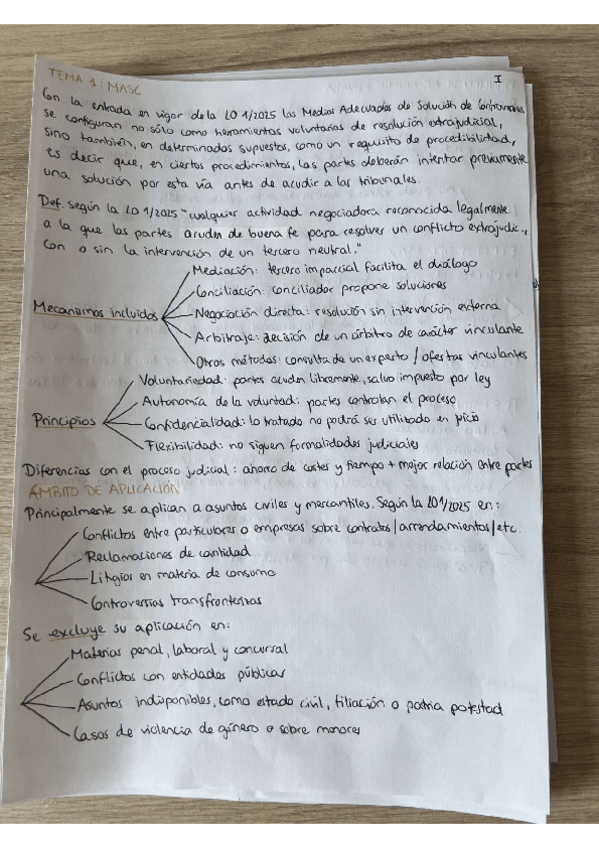 TEMA 1: MASC
I
Con la entrada en vigor de la LO 1/2025 los Medios Adecuados de Solución de Controversias
se configuran no sólo como herramientas voluntarias de resolución extrajudicial,
sino también, en determinados supuestos, como un requisito de procedibilidad,
es decir que, en ciertos procedimientos, las partes deberán intentar previamente
una solución por esta vía antes de acudir a los tribunales.
Def. según la LO 1/2025 "cualquier actividad negociadora reconocida legalmente
a la que las partes acuden de buena fe para resolver un conflicto extrajudic.,
con o sin la intervención de un tercero neutral."
Mediación: tercero imparcial facilita el diálogo
Conciliación: conciliador propone soluciones
Mecanismos incluidos
Negociación directa: resolución sin intervención externa
Arbitraje: decisión de un árbitro de carácter vinculante
Otros métodos: consulta de un experto / ofertas vinculantes
Voluntariedad: partes acuden libremente, salvo impuesto por ley
Autonomía de la voluntad: partes controlan el proceso
Principios
Confidencialidad: lo tratado no podrá ser utilizado en juicio
Flexibilidad: no siguen formalidades judiciales
Diferencias con el proceso judicial: ahorro de costes y tiempo + mejor relación entre partes
ÁMBITO DE APLICACIÓN
Principalmente se aplican a asuntos civiles y mercantiles. Según la LO 1/2025 en:
Conflictos entre particulares o empresas sobre contratos/arrendamientos/etc.
Reclamaciones de cantidad
Litigios en materia de consumo
Controversias transfronterizas
Se excluye su aplicación en:
Materias penal, laboral y concursal
Conflictos con entidades públicas
Asuntos indisponibles, como estado civil, filiación o patria potestad
Casos de violencia de género o sobre menores